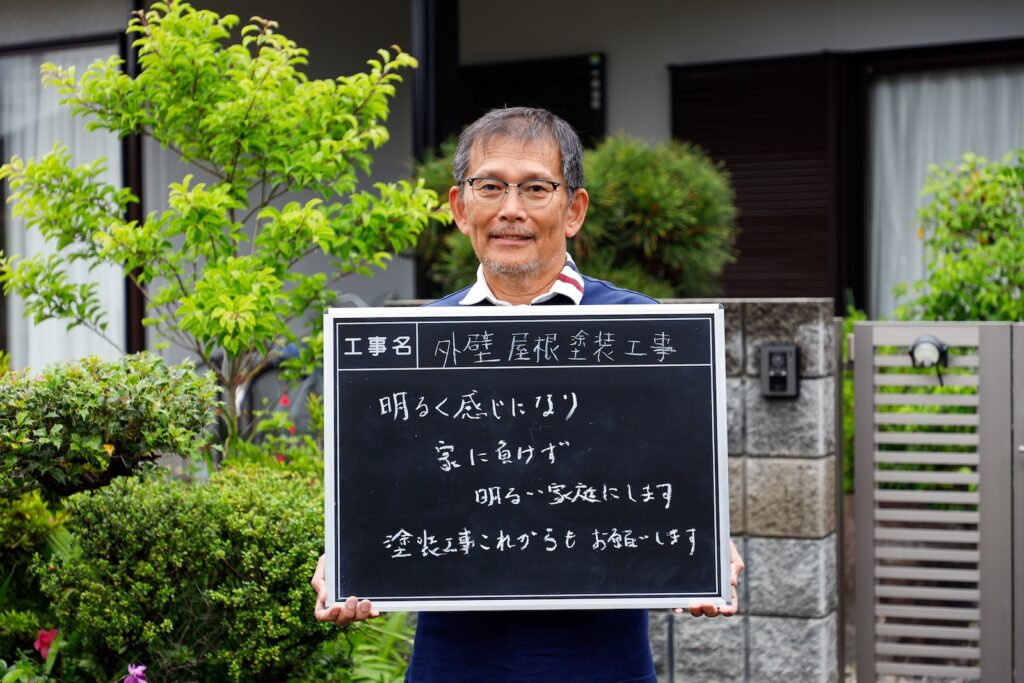 工事名 外壁屋根塗装工事
明るく感じになり
家に負けず
明るい家庭にします
塗装工事これからもお願いします